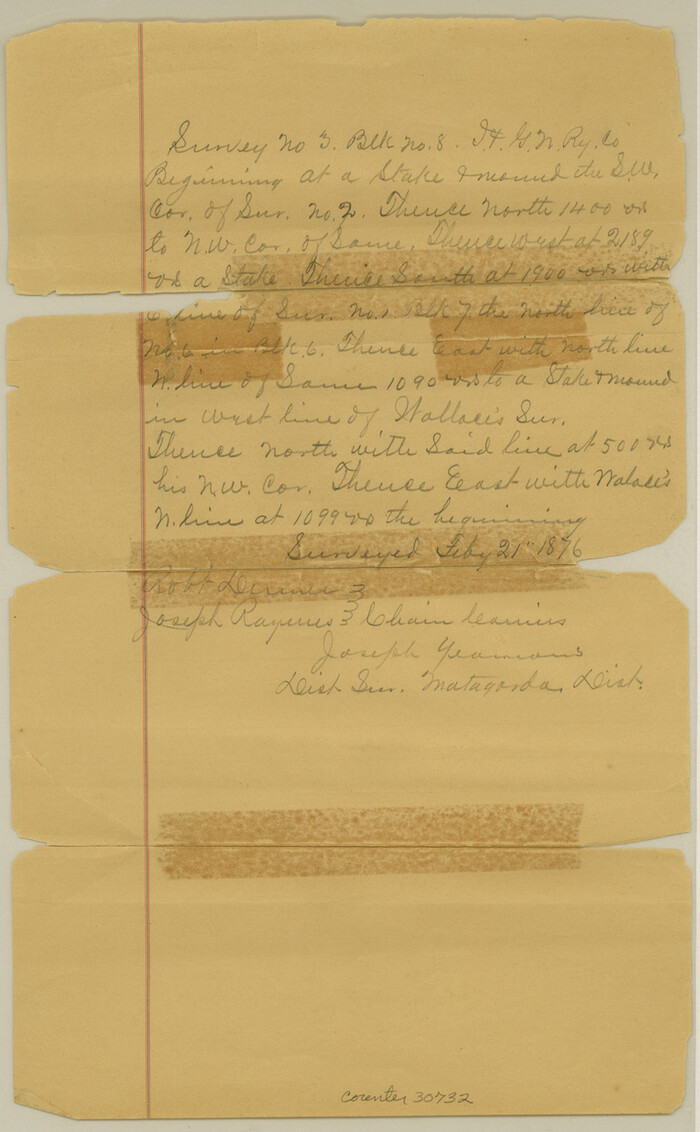 Survey No 3. Blk No. 8. I.&G.N.Ry.Co
Beginning at a Stake & mound the S.W.
Cor. of Sur. No. 2. Thence North 1400 vrs
to N.W. Cor. of Same. Thence West at 2189
vrs a Stake Thence South at 1900 vrs with
E. line of Sur. No. 1 Blk 7 the north line of
No. 6 in Blk. 6. Thence East with north line
N. line of Same 1090 vrs to a Stake & mound
in West line of Wallace's Sur.
Thence north with Said line at 500 vrs
his N.W. Cor. Thence East with Walace's
N. line at 1099 vrs the beginning
Surveyed Feby 21" 1876
Robt
Joseph Chain Carriers
Joseph Yeamans
Dist. Sur. Matagorda Dist.
counter 30732